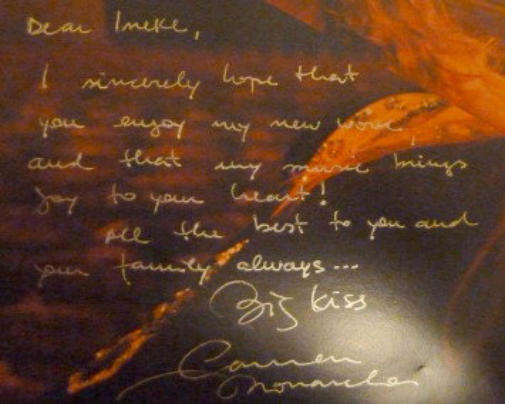 Dear Ineke,
I sincerely hope that
you enjoy my new work,
and that my music brings
joy to your heart!
All the best to you and
your family always...
Big kiss
Carmen
Monarcha